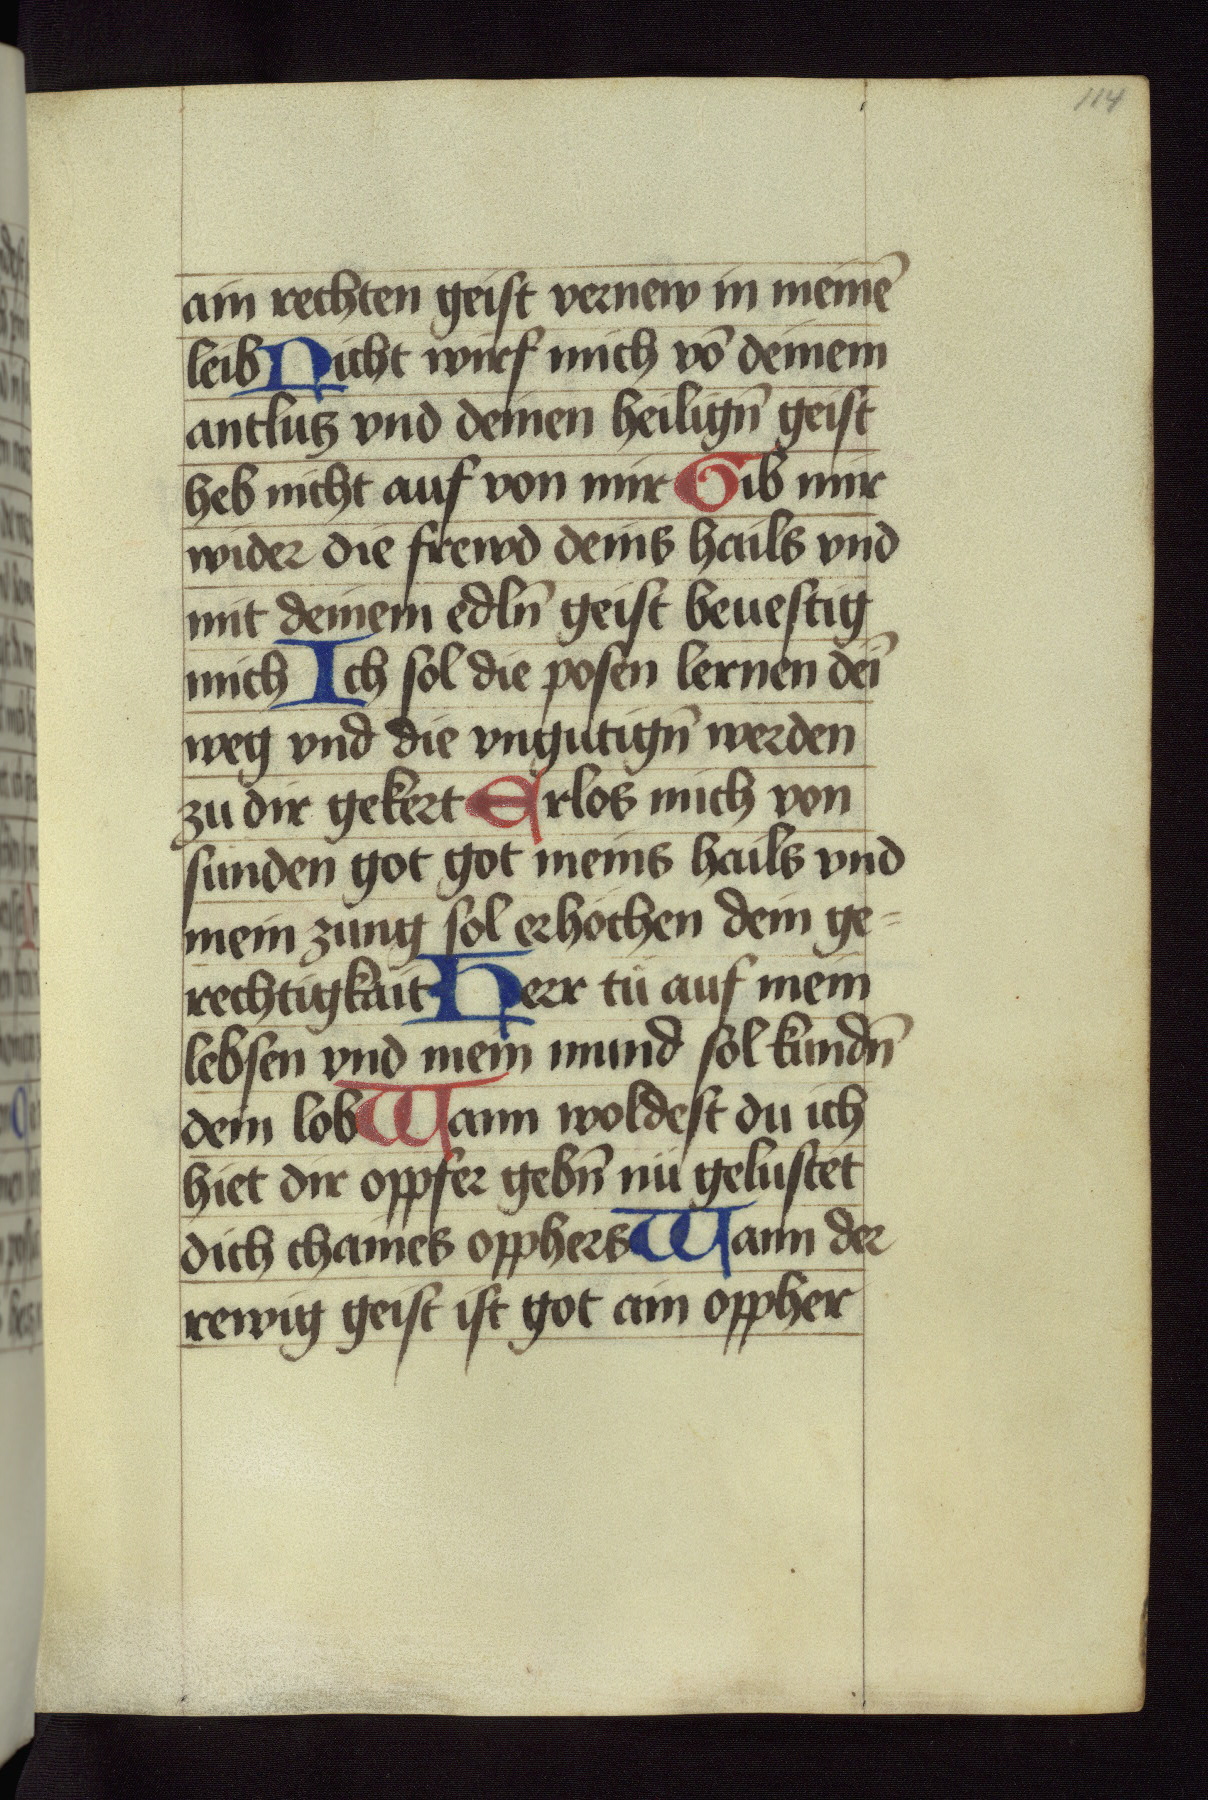 114
ain rechten geist vernew in meinē
leib Nicht wirf mich vō deinem
antlutz vnd deinen heilign̄ geist
heb nicht auf von mir Gib mir
wider die frewd deins hails vnd
mit deinem edln̄ geist beuestig
mich Ich sol die posen lernen deī
weg vnd die vngutign̄ werden
zu dir gekert Erlos mich von
sunden got got meins hails vnd
mein zung sol erhochen dein ge=
rechtigkait Herr tu auf mein
lebsen vnd mein mund sol kundn̄
dein lob Wann woldest du ich
hiet dir oppfer gebn̄ nu gelustet
dich chaines opphers Wann der
rewig geist ist got ain oppher